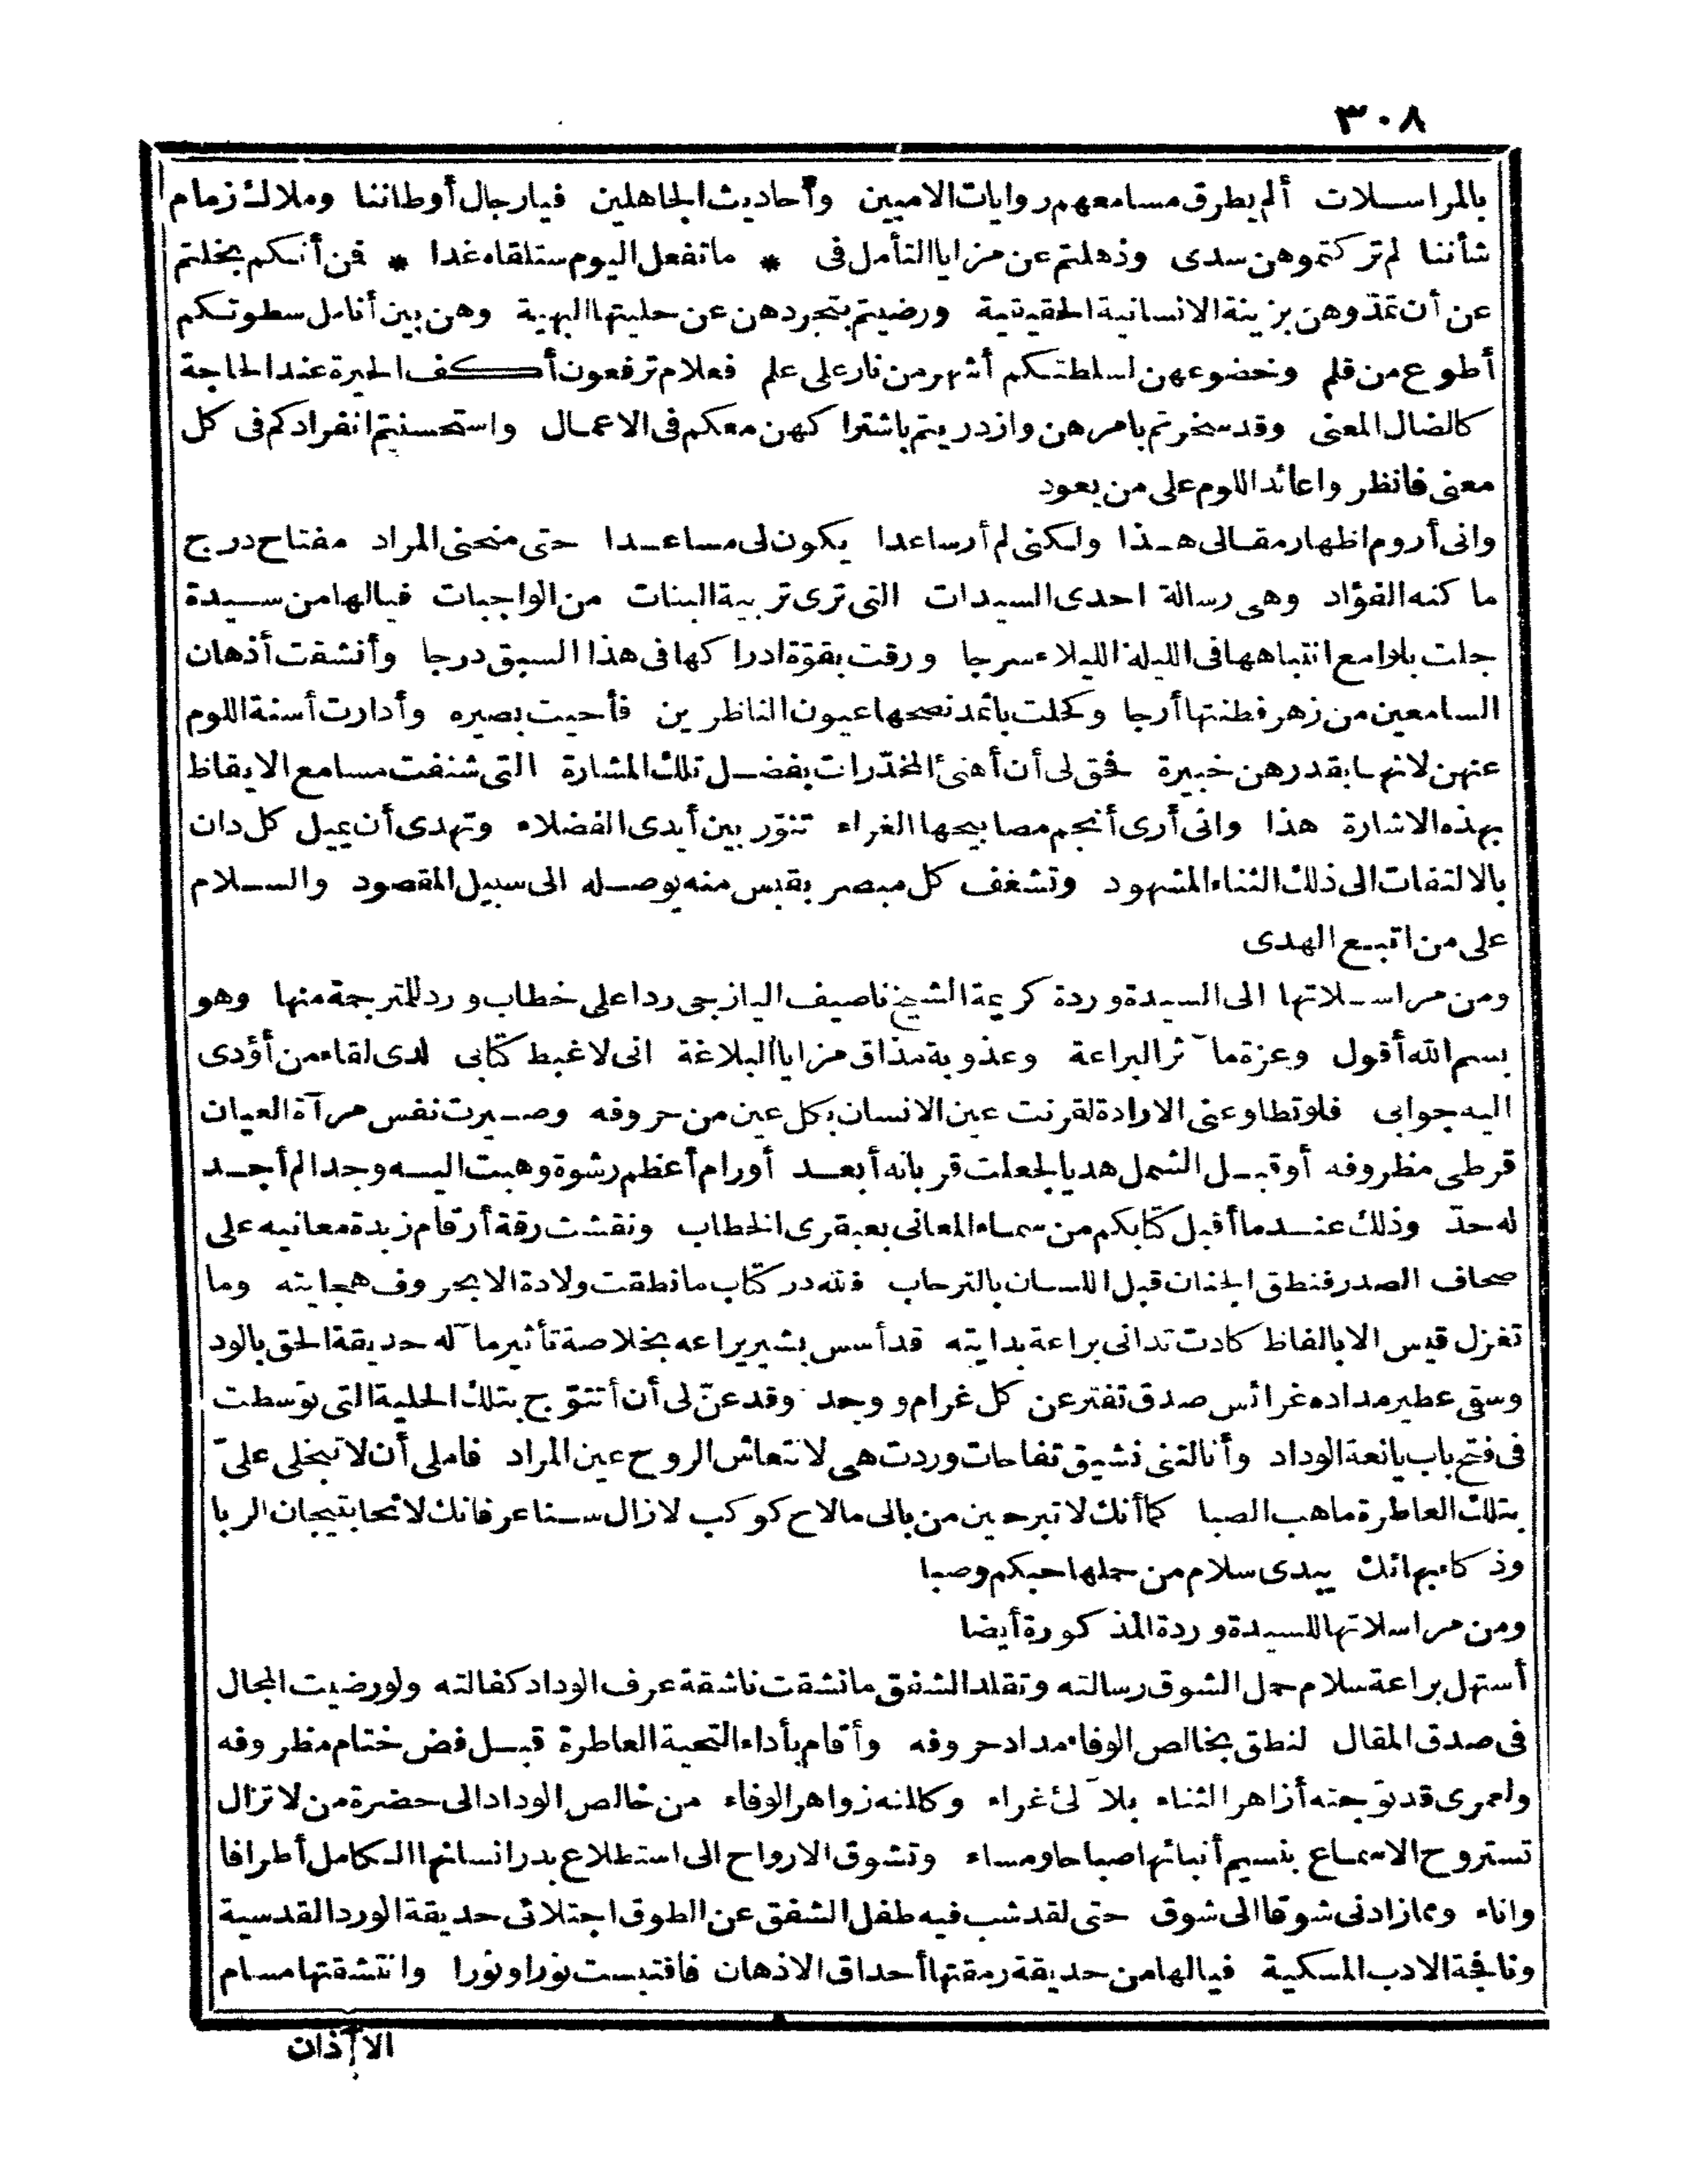 ٣٠٨
بالمراسلات ألم يطرق مسامعهم روايات الاميين وأحاديث الجاهلين فيارجال أوطاننا وملاك زمام
شأننا لم تركتموهن سدى وذهلتم عن مزايا التأمل فى * ما تفعل اليوم ستلقاه غدا * فمن أنكم بخلتم
عن أن تمدّوهن بزينة الانسانية الحقيقية ورضيتم بتجردهن عن حليتها البهية وهن بين أنامل سطوتكم
أطوع من قلم وخضوعهن لسلطتكم أشهر من نار على علم فعلام ترفعون أكف الحيرة عند الحاجة
كالضال المعنى وقد سخرتم بامرهن وازدريتم باشتراكهن معكم فى الاعمال واستحسنتم انفرادكم فى كل
معنى فانظروا عائد اللوم على من يعود
وانى أروم اظهار مقالى هذا ولكنى لم أر ساعدا يكون لى مساعدا حتى منحنى المراد مفتاح درج
ما كنه الفؤاد وهى رسالة احدى السيدات التى ترى تربية البنات من الواجبات فيالها من سيدة
جلت بلوامع انتباهها فى الليلة الليلاء سرجا ورقت بقوّة ادراكها فى هذا السبق درجا وأنشقت أذهان
السامعين من زهر فطنتها أرجا وكحلت باثمد نصحها عيون الناظرين فأحيت بصيره وأدارت أسنة اللوم
عنهن لانها بقدرهن خبيرة فحق لى أن أهنئ المخدّرات بفضل تلك المشارة التى شنفت مسامع الايقاظ
بهذه الاشارة هذا وانى أرى أنجم مصابيحها الغراء تنوّر بين أيدى الفضلاء وتهدى أن يميل كل دان
بالالتفات الى ذلك الثناء المشهود وتشغف كل مبصر بقبس منه يوصله الى سبيل المقصود والسلام
على من اتبع الهدى
ومن مراسلاتها الى السيدة وردة كريمة الشيخ ناصيف اليازجى ردا على خطاب ورد للمترجمة منها وهو
بسم الله أقول وعزة مآثر البراعة وعذوبة مذاق مزايا البلاغة انى لاغبط كتابى لدى لقاء من أؤدى
اليه جوابى فلو تطاوعنى الارادة لقرنت عين الانسان بكل عين من حروفه وصيرت نفس مرآة العيان
قرطى مظروفه أو قبل الشمل هديا لجعلت قربانه أبعد أورام أعظم رشوة وهبت اليه وجدا لم أجد
له حدّ وذلك عندما أقبل كتابكم من سماء المعانى بعبقرى الخطاب ونقشت رقة أرقام زبدة معانيه على
صحاف الصدر فنطق الجنان قبل اللسان بالترحاب فلله در كتاب ما نطقت ولادة الا بحروف هجايته وما
تغزل قيس الا بالفاظ كادت تدانى براعة بدايته قد أسس بشير يراعه بخلاصة تأثير مآله حديقة الحق بالود
وسقى عطير مداده غرائس صدق تفتر عن كل غرام ووجد وقد عنّ لى أن أتتوّج بتلك الحلية التى توسطت
فى فتح باب يانعة الوداد وأنالتنى نشيق تفاحات وردت هى لانتعاش الروح عين المراد فاملى أن لا تبخلى علىّ
بتلك العاطرة ما هب الصبا كما أنك لا تبرحين من بالى ما لاح كوكب لا زال سنا عرفانك لائحا بتيجان الربا
وذكاء بهائك يبدى سلام من حملها حبكم وصبا
ومن مراسلاتها للسيدة وردة المذكورة أيضا
أستهل براعة سلام حمل الشوق رسالته وتقلد الشفق ما نشقت ناشقة عرف الوداد كفالته ولو رضيت المجال
فى صدق المقال لنطق بخالص الوفاء مداد حروفه وأقام بأداء التحية العاطرة قبل فض ختام مظروفه
ولعمرى قد توّجته أزاهر الثناء بلآلئ غراء وكالمنه زواهر الوفاء من خالص الوداد الى حضرة من لا تزال
تستروح الاسماع بنسيم أنبائها صباحا ومساء وتشوق الارواح الى استطلاع بدر انسانها الكامل أطرافا
واناء ومما زادنى شوقا الى شوق حتى لقد شب فيه طفل الشفق عن الطوق اجتلائى حديقة الورد القدسية
ونافجة الادب المسكية فيالها من حديقة رمقتها أحداق الاذهان فاقتبست نورا ونورا وانتشقتها مسام
الآذان